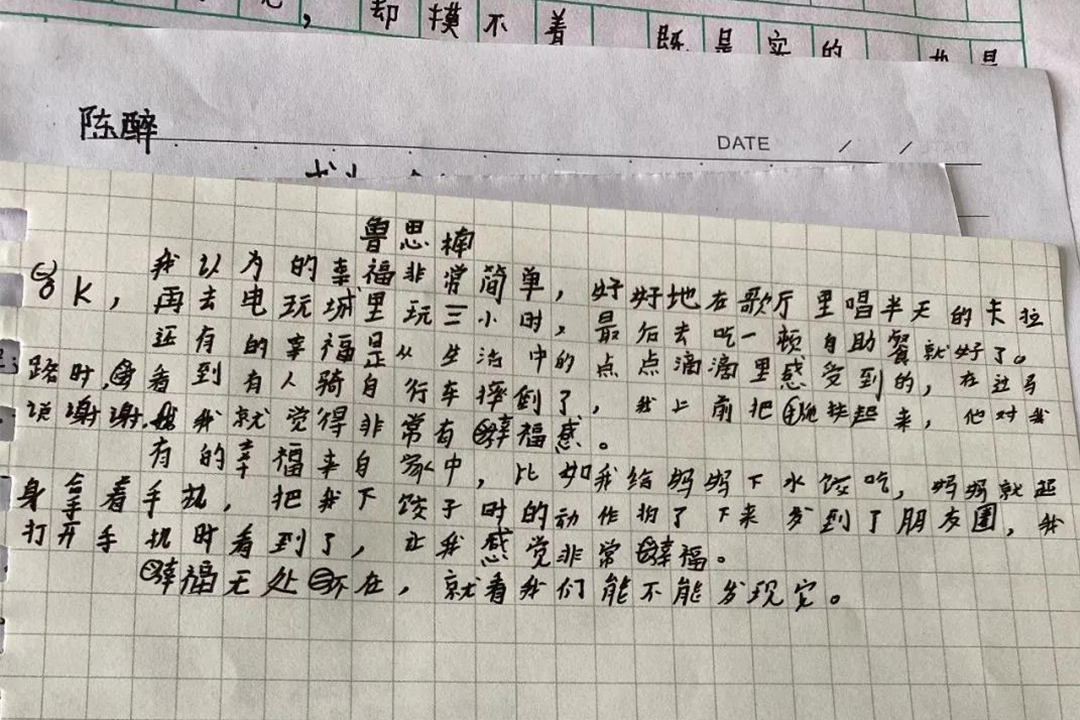 却摸不着 既是实的
陈醉
DATE / /
鲁思楠
我以为的幸福非常简单，好好地在歌厅里唱半天的卡拉
OK，再去电玩城里玩三小时，最后去吃一顿自助餐就好了。
还有的幸福是从生活中的点点滴滴里感受到的，在过马
路时，看到有人骑自行车摔倒了，我上前把他扶起来，他对我
说谢谢，我就觉得非常有幸福感。
有的幸福来自家中，比如我给妈妈下水饺吃，妈妈就起
身拿着手机，把我下饺子时的动作拍了下来发到了朋友圈，我
打开手机时看到了，让我感觉非常幸福。
幸福无处不在，就看我们能不能发现它。